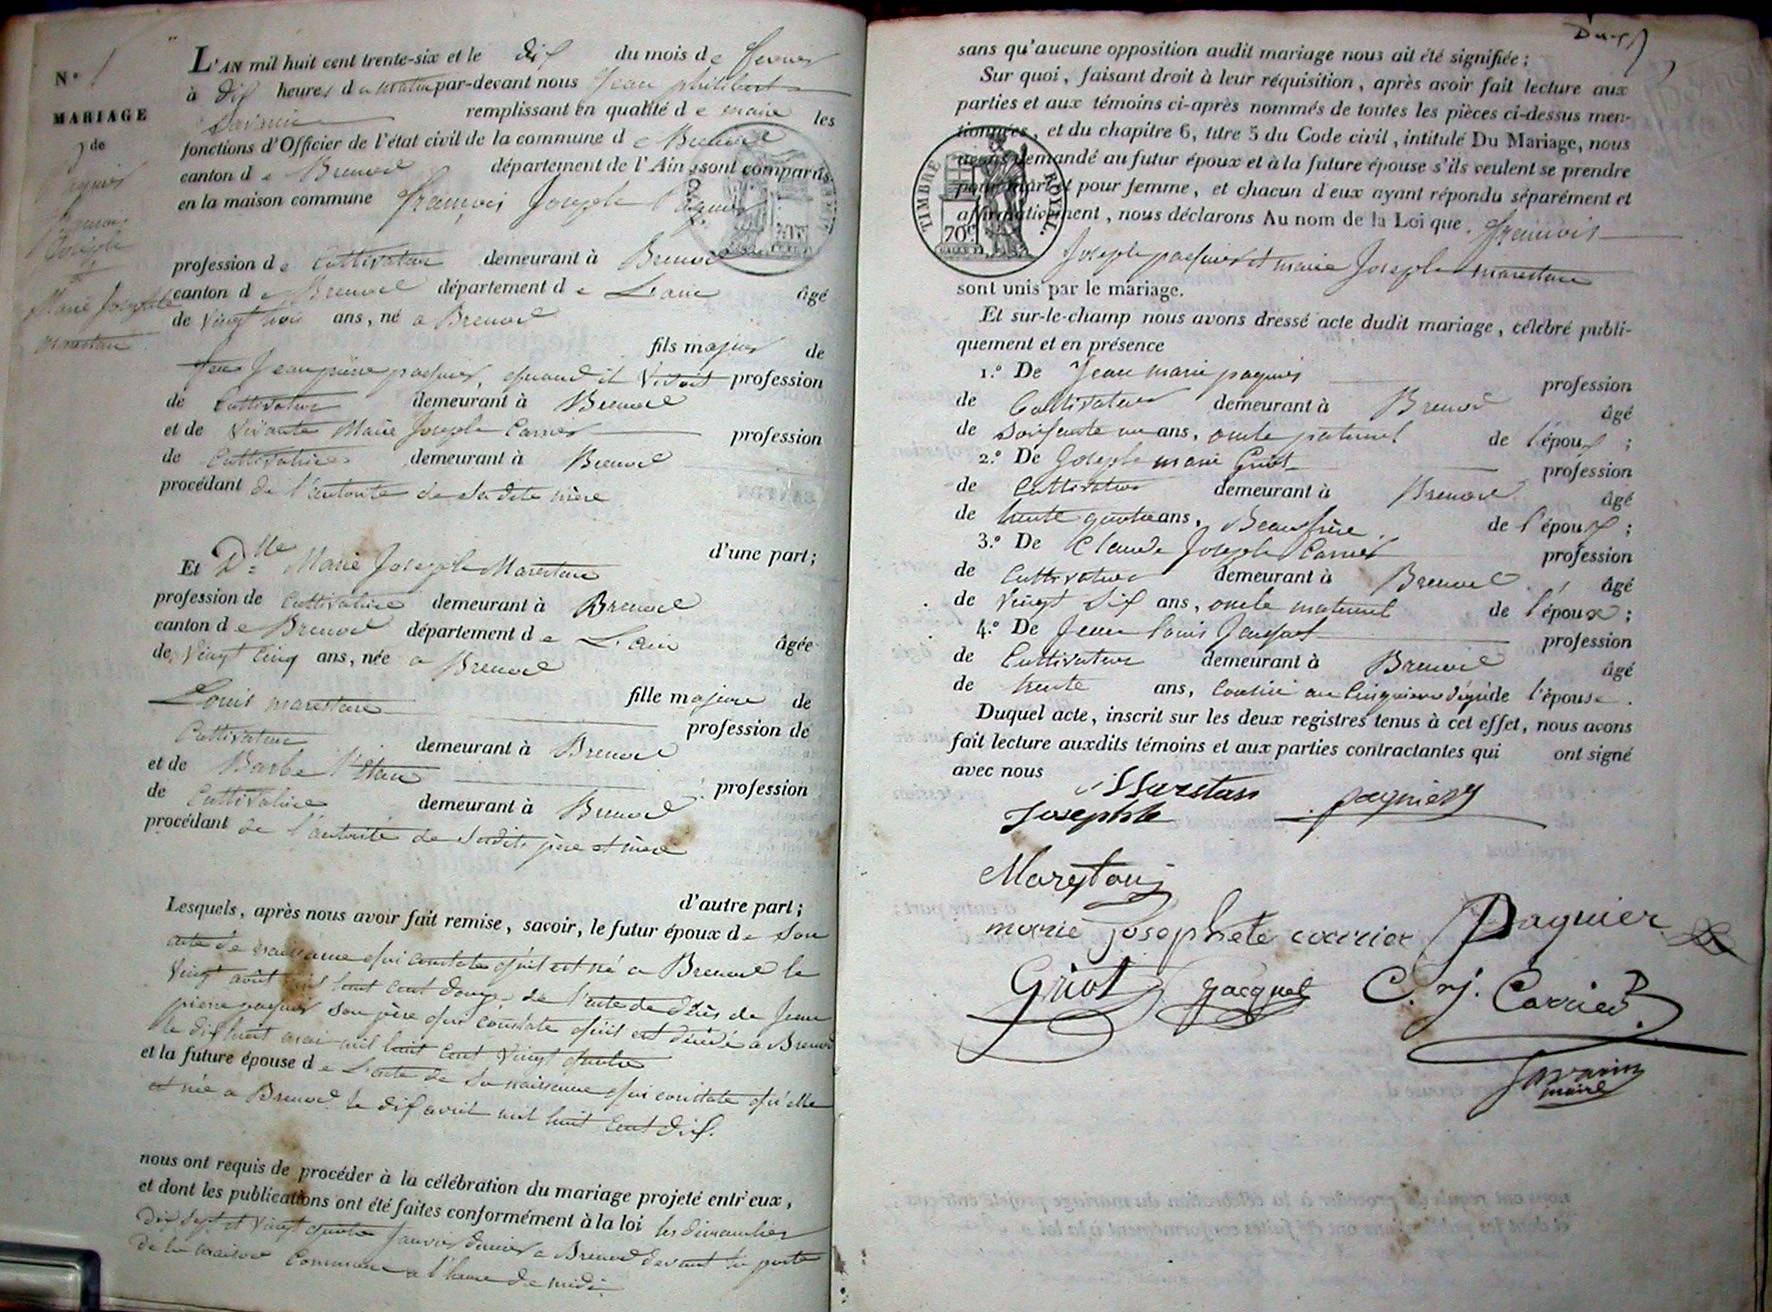 N.º 1
MARIAGE
de
Joseph
et
Marie Josephte
marestan
L'AN mil huit cent trente-six et le dix du mois de fevrier
à dix heures du matin par-devant nous Jean philibert
Savarin remplissant en qualité de maire les
fonctions d'Officier de l'état civil de la commune de Brenod
canton de Brenod département de l'Ain, sont comparus
en la maison commune françois Joseph Paquier
profession de Cultivateur demeurant à Brenod
canton de Brenod département de L'ain âgé
de vingt trois ans, né a Brenod
fils majeur de
feu Jean pierre paquier, quand il vivoit profession
de Cultivateur demeurant à Brenod
et de vivante Marie Joseph Carrier profession
de Cultivatrice demeurant à Brenod
procédant de l'autorité de sa dite mère
d'une part;
Et D.lle Marie Joseph Marestan
profession de Cultivatrice demeurant à Brenod
canton de Brenod département de L'ain âgée
de vingt cinq ans, née a Brenod
fille majeure de
Louis marestan profession de
Cultivateur demeurant à Brenod
et de Barbe profession
de Cultivatrice demeurant à Brenod
procédant de l'autorité de sesdits père et mère
d'autre part;
Lesquels, après nous avoir fait remise, savoir, le futur époux de son
acte de naissance qui constate qu'il est né a Brenod le
vingt août mil huit cent douze, de l'acte de décès de Jean
pierre paquier son père qui constate qu'il est décédé a Brenod
le dix huit mai mil huit cent vingt quatre
et la future épouse de L'acte de sa naissance qui constate qu'elle
est née a Brenod le dix avril mil huit cent dix.
nous ont requis de procéder à la célébration du mariage projeté entr'eux,
et dont les publications ont été faites conformément à la loi les dimanches
dix sept et vingt quatre Janvier dernier a Brenod devant la porte
de la maison Commune a l'heure de midi.
sans qu'aucune opposition audit mariage nous ait été signifiée;
Sur quoi, faisant droit à leur réquisition, après avoir fait lecture aux
parties et aux témoins ci-après nommés de toutes les pièces ci-dessus men-
tionnées, et du chapitre 6, titre 5 du Code civil, intitulé Du Mariage, nous
avons demandé au futur époux et à la future épouse s'ils veulent se prendre
pour mari et pour femme, et chacun d'eux ayant répondu séparément et
affirmativement, nous déclarons Au nom de la Loi que françois
Joseph paquier et marie Joseph marestan
sont unis par le mariage.
TIMBRE ROYAL
70c
Et sur-le-champ nous avons dressé acte dudit mariage, célébré publi-
quement et en présence
1.º De Jean marie paquier profession
de Cultivateur demeurant à Brenod âgé
de soixante un ans, oncle paternel de l'époux;
2.º De Joseph marie Griot profession
de Cultivateur demeurant à Brenod âgé
de trente quatre ans, Beaufrère de l'époux;
3.º De Claude Joseph Carrier profession
de Cultivateur demeurant à Brenod âgé
de vingt six ans, oncle maternel de l'époux;
4.º De Jean louis Jacquet profession
de Cultivateur demeurant à Brenod âgé
de trente ans, Cousin au Cinquieme dégré de l'épouse.
Duquel acte, inscrit sur les deux registres tenus à cet effet, nous avons
fait lecture auxdits témoins et aux parties contractantes qui ont signé
avec nous
Marestan paquier
Josephte
Marestan
marie Josephete carrier Paquier
Griot Jacquet C. J. Carrier
Savarin
maire